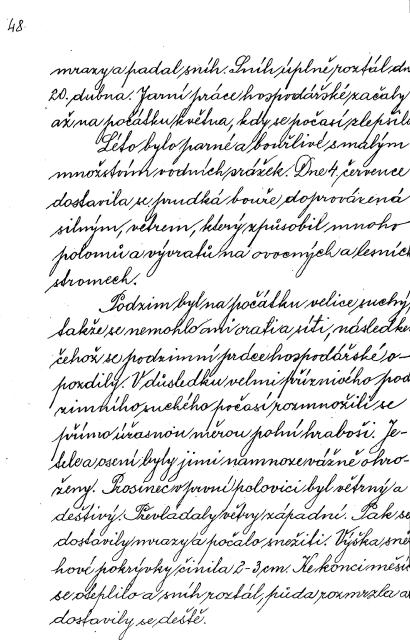 48
mrazy a padal sníh. Sníh úplně roztál dn
20. dubna. Jarní práce hospodářské začaly
až na počátku května, kdy se počasí zlepšilo
Léto bylo parné a bouřlivé s malým
množstvím vodních srážek. Dne 4. července
dostavila se prudká bouře doprovázená
silným, větrem, který způsobil mnoho
polomů a vývratů na ovocných a lesních
stromech.
Podzim byl na počátku velice suchý,
takže se nemohlo ani orati a síti, následke
čehož se podzimní práce hospodářské o-
pozdily. V důsledku velmi příznivého pod
zimního suchého počasí rozmnožili se
přímo úžasnou měrou polní hraboši. Je-
tele a osení byly jimi namnoze vážně ohro-
ženy. Prosinec v první polovici byl větrný a
deštivý. Převládaly větry západní. Pak se
dostavily mrazy a počalo sněžiti. Výška sně
hové pokrývky činila 2-3 cm. Ke konci měsíc
se oteplilo a sníh roztál, půda rozmrzla a
dostavily se deště.